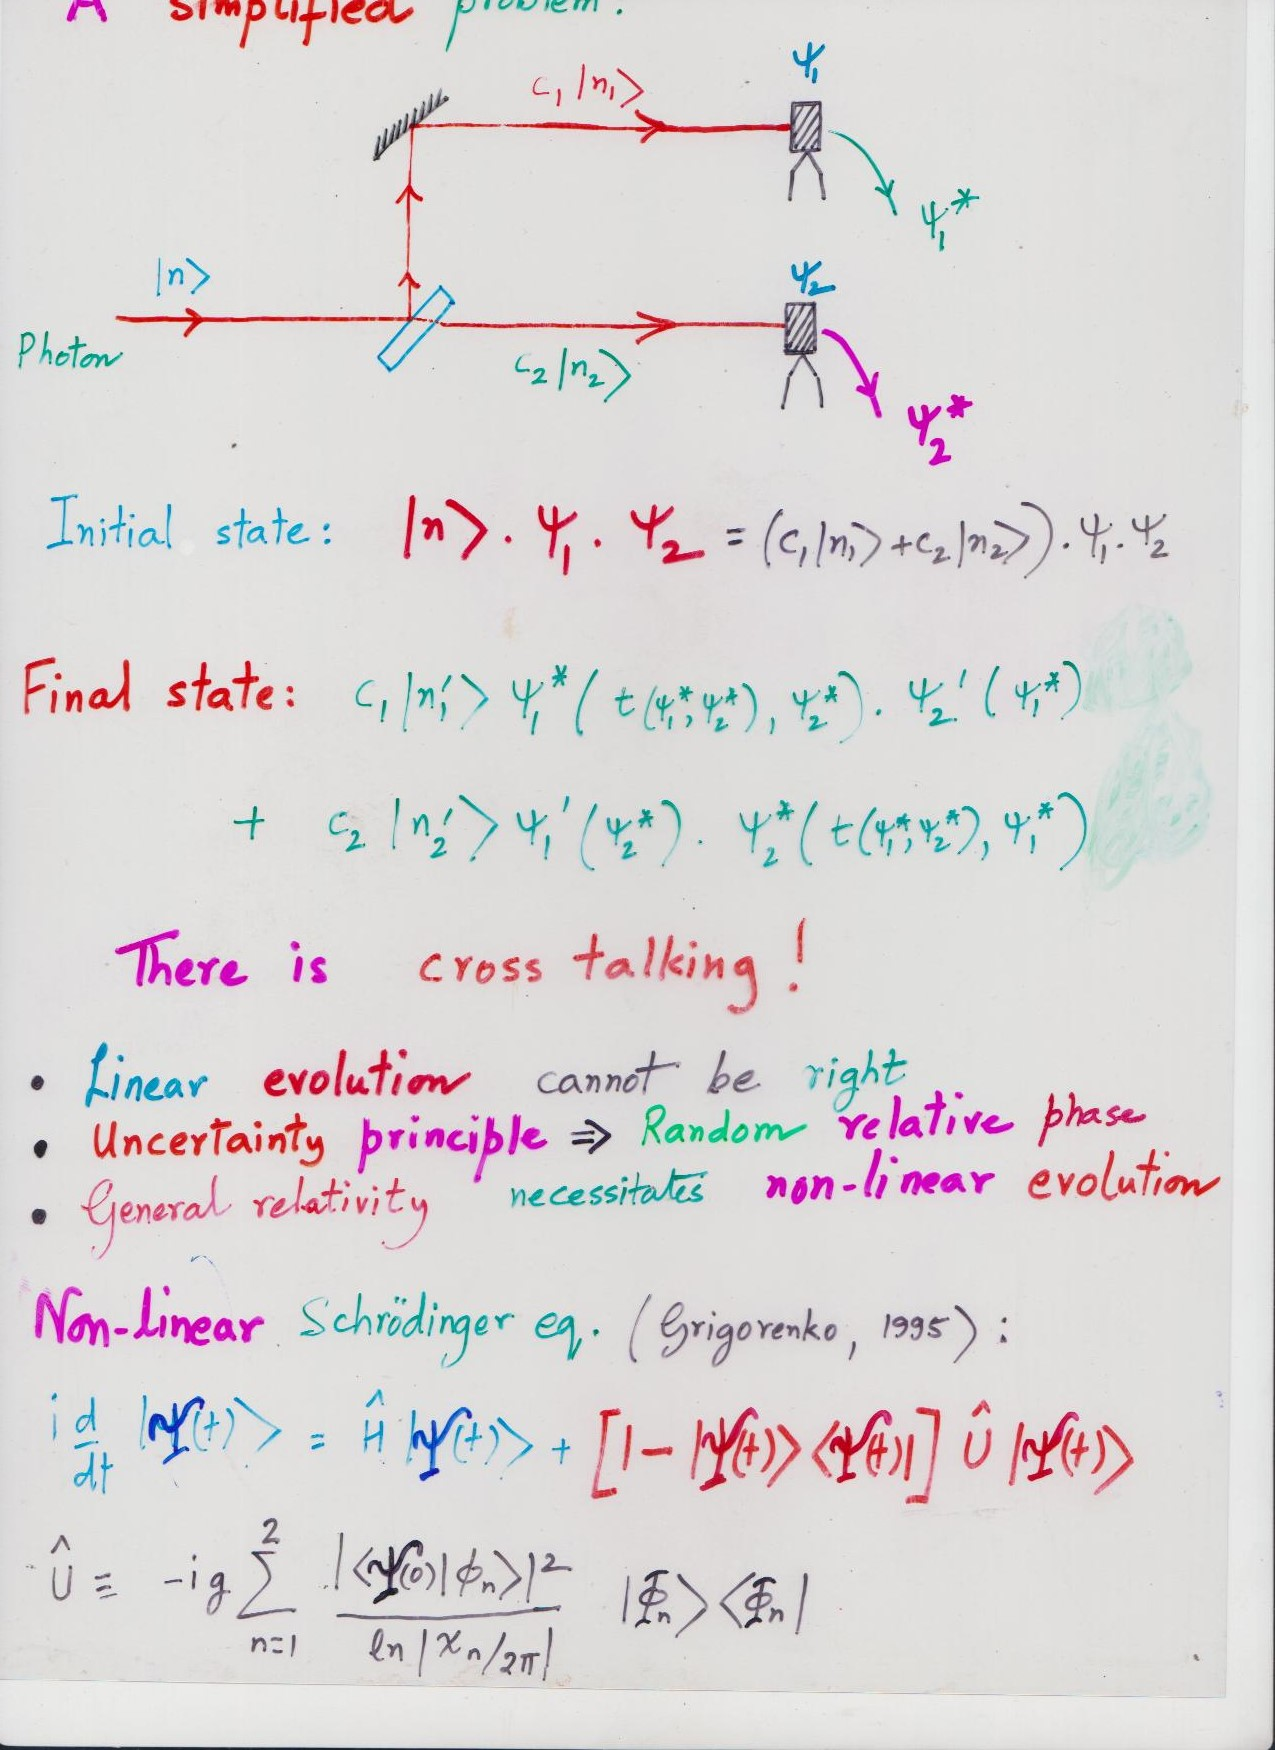 A simplified problem:
ψ₁
c₁|n₁>
ψ₁*
|n>
ψ₂
Photon
c₂|n₂>
ψ₂*
Initial state: |n> . ψ₁ . ψ₂ = (c₁|n₁> + c₂|n₂>) . ψ₁ . ψ₂
Final state: c₁|n₁'> ψ₁*( t(ψ₁*, ψ₂*), ψ₂*) . ψ₂'(ψ₁*)
+ c₂|n₂'> ψ₁'(ψ₂*) . ψ₂*( t(ψ₁*, ψ₂*), ψ₁*)
There is cross talking!
• Linear evolution cannot be right
• Uncertainty principle ⇒ Random relative phase
• General relativity necessitates non-linear evolution
Non-linear Schrödinger eq. (Grigorenko, 1995):
i d/dt |Ψ(t)> = Ĥ |Ψ(t)> + [1 - |Ψ(t)><Ψ(t)|] Û |Ψ(t)>
Û ≡ -ig Σ_{n=1}^{2} |<Ψ(0)|ϕₙ>|² / ln|xₙ/2π| |Φₙ><Φₙ|